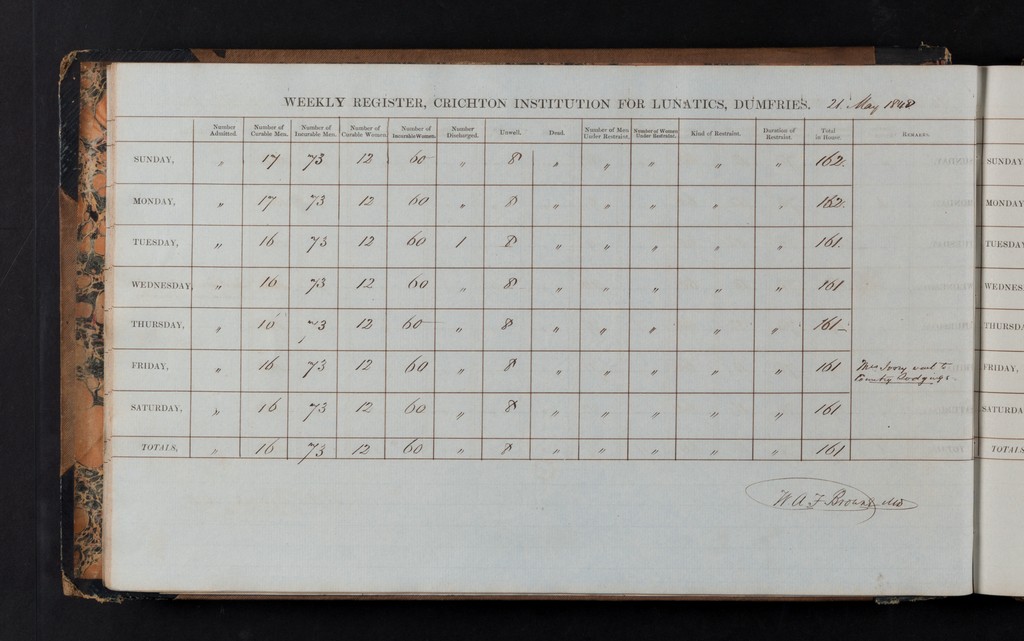 WEEKLY REGISTER, CRICHTON INSTITUTION FOR LUNATICS, DUMFRIES. 21 May 1848
Number Admitted. Number of Curable Men. Number of Incurable Men. Number of Curable Women. Number of Incurable Women. Number Discharged. Unwell. Dead. Number of Men Under Restraint. Number of Women Under Restraint. Kind of Restraint. Duration of Restraint. Total in House. REMARKS.
SUNDAY, " 17 73 12 60 " 8 " " " " " 162.
MONDAY, " 17 73 12 60 " 8 " " " " " 162.
TUESDAY, " 16 73 12 60 1 8 " " " " " 161.
WEDNESDAY, " 16 73 12 60 " 8 " " " " " 161
THURSDAY, " 16 73 12 60 " 8 " " " " " 161
FRIDAY, " 16 73 12 60 " 8 " " " " " 161 Ivory went to
Country Lodgings
SATURDAY, " 16 73 12 60 " 8 " " " " " 161
TOTALS, " 16 73 12 60 " 8 " " " " " 161
W A F Browne MD
SUNDAY
MONDAY
TUESDA
WEDNES
THURSD
FRIDAY,
SATURDA
TOTALS